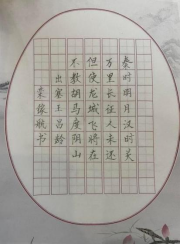 秦时明月汉时关
万里长征人未还
但使龙城飞将在
不教胡马度阴山
出塞王昌龄
书